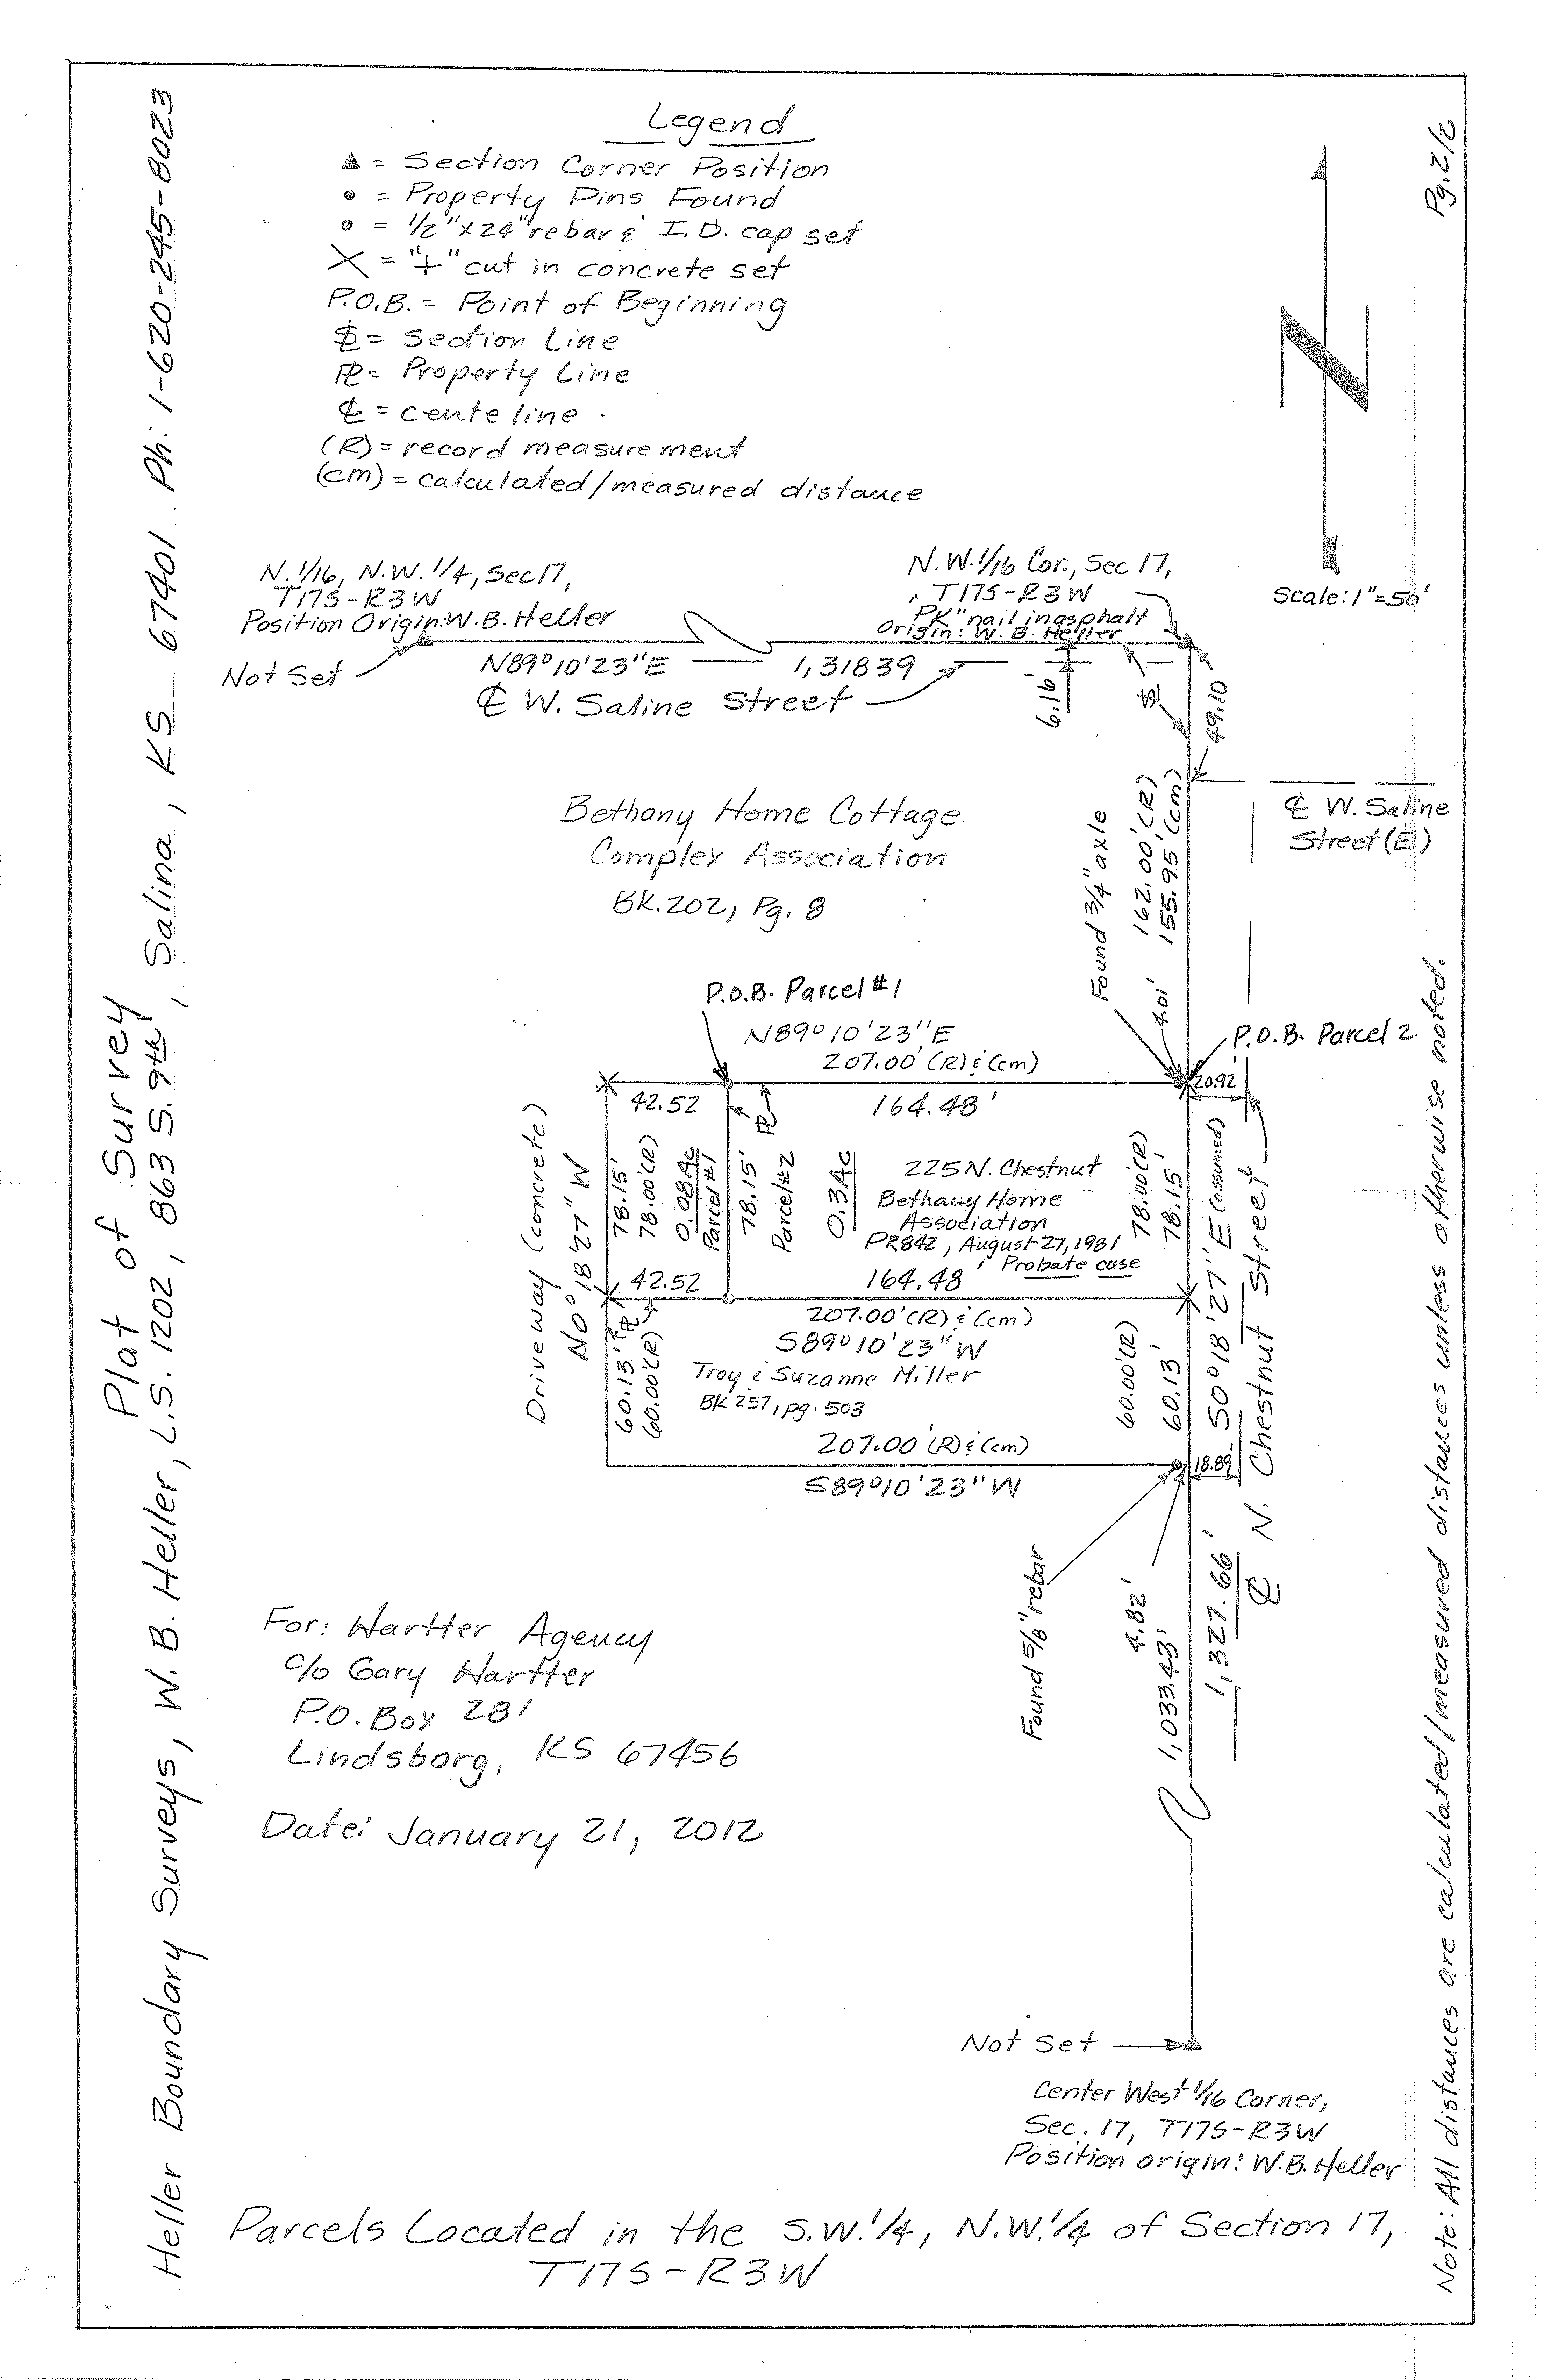 Legend
▲ = Section Corner Position
● = Property Pins Found
○ = 1/2"x24" rebar & I.D. cap set
X = "+" cut in concrete set
P.O.B. = Point of Beginning
SL = Section Line
PL = Property Line
CL = cente line
(R) = record measurement
(cm) = calculated/measured distance
Pg. 2/2
N
Scale: 1"=50'
Plat of Survey
Heller Boundary Surveys, W. B. Heller, L.S. 1202, 863 S. 9th, Salina, KS 67401 Ph: 1-620-245-8023
N. 1/16, N.W. 1/4, Sec 17,
T17S-R3W
Position Origin: W.B. Heller
Not Set
N.W. 1/16 Cor., Sec 17,
T17S-R3W
"PK" nail in asphalt
Origin: W. B. Heller
N89°10'23"E 1,31839
CL W. Saline Street
6.16'
SL
49.10
CL W. Saline
Street (E.)
Bethany Home Cottage
Complex Association
BK. 202, Pg. 8
Found 3/4" axle
162.00' (R)
155.95' (cm)
4.01'
P.O.B. Parcel #1
P.O.B. Parcel 2
N89°10'23"E
207.00' (R) & (cm)
20.92
42.52
164.48'
PL
Driveway (concrete)
N0°18'27"W
78.15'
78.00'(R)
0.08Ac
Parcel #1
78.15'
Parcel #2
0.3Ac
225 N. Chestnut
Bethany Home
Association
PR842, August 27, 1981
Probate case
78.00'(R)
78.15'
S0°18'27"E (assumed)
42.52
164.48'
207.00' (R) & (cm)
S89°10'23"W
PL
60.13'
60.00'(R)
Troy & Suzanne Miller
BK 257, pg. 503
60.00'(R)
60.13'
207.00' (R) & (cm)
S89°10'23"W
18.89
CL N. Chestnut Street
Found 5/8" rebar
4.82'
1,033.43'
1,327.66'
For: Hartter Agency
c/o Gary Hartter
P.O. Box 281
Lindsborg, KS 67456
Date: January 21, 2012
Not Set
Center West 1/16 Corner,
Sec. 17, T17S-R3W
Position origin: W.B. Heller
Parcels Located in the S.W. 1/4, N.W. 1/4 of Section 17,
T17S-R3W
Note: All distances are calculated/measured distances unless otherwise noted.